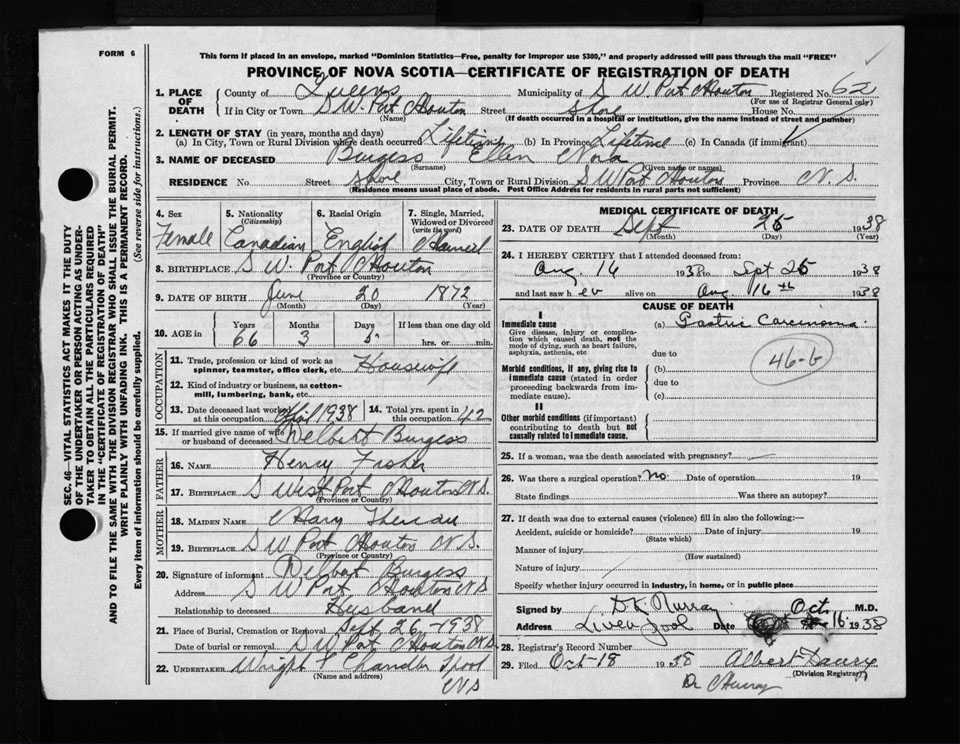 FORM 6
This form if placed in an envelope, marked "Dominion Statistics—Free, penalty for improper use $300," and properly addressed will pass through the mail "FREE"
PROVINCE OF NOVA SCOTIA—CERTIFICATE OF REGISTRATION OF DEATH
1. PLACE OF DEATH
County of Queens Municipality of S. W. Port Mouton Registered No. 62
(For use of Registrar General only)
If in City or Town S W. Port Mouton Street Shore House No.
(Name) (If death occurred in a hospital or institution, give the name instead of street and number)
2. LENGTH OF STAY (in years, months and days)
(a) In City, Town or Rural Division where death occurred Lifetime (b) In Province Lifetime (c) In Canada (if immigrant)
3. NAME OF DECEASED Burgess Ellen Nora
(Surname) (Given name or names)
RESIDENCE No. Street Shore City, Town or Rural Division S W Port Mouton Province N. S.
(Residence means usual place of abode. Post Office Address for residents in rural parts not sufficient)
4. Sex
Female
5. Nationality
(Citizenship)
Canadian
6. Racial Origin
English
7. Single, Married, Widowed or Divorced
(write the word)
Married
8. BIRTHPLACE S W. Port Mouton
(Province or Country)
9. DATE OF BIRTH June 20 1872
(Month) (Day) (Year)
10. AGE in Years Months Days If less than one day old
66 3 5 hrs. or min.
OCCUPATION
11. Trade, profession or kind of work as spinner, teamster, office clerk, etc. Housewife
12. Kind of industry or business, as cotton-mill, lumbering, bank, etc.
13. Date deceased last worked at this occupation 1938
14. Total yrs. spent in this occupation 42
15. If married give name of wife or husband of deceased Delbert Burgess
FATHER
16. NAME Henry Fisher
17. BIRTHPLACE S West Port Mouton N S.
(Province or Country)
MOTHER
18. MAIDEN NAME Mary
19. BIRTHPLACE S W Port Mouton N. S.
(Province or Country)
20. Signature of informant Delbert Burgess
Address S W Port Mouton N S
Relationship to deceased Husband
21. Place of Burial, Cremation or Removal Sept. 26-1938
Date of burial or removal S W Port Mouton N S.
22. UNDERTAKER Wright & Chandler Lpool
(Name and address) N S
MEDICAL CERTIFICATE OF DEATH
23. DATE OF DEATH Sept 25 1938
(Month) (Day) (Year)
24. I HEREBY CERTIFY that I attended deceased from:
Aug 16 1938 to Sept 25 1938
and last saw her alive on Aug 16th 1938
CAUSE OF DEATH
I
Immediate cause (a) Gastric Carcinoma.
Give disease, injury or complication which caused death, not the mode of dying, such as heart failure, asphyxia, asthenia, etc
due to
46-b
Morbid conditions, if any, giving rise to immediate cause (stated in order proceeding backwards from immediate cause).
(b)
due to
(c)
II
Other morbid conditions (if important) contributing to death but not causally related to immediate cause.
25. If a woman, was the death associated with pregnancy? —
26. Was there a surgical operation? No Date of operation 19
State findings Was there an autopsy?
27. If death was due to external causes (violence) fill in also the following:—
Accident, suicide or homicide? Date of injury 19
(State which)
Manner of injury
(How sustained)
Nature of injury
Specify whether injury occurred in industry, in home, or in public place
Signed by D K Murray M.D.
Address Liverpool Date Oct 16 1938
28. Registrar's Record Number
29. Filed Oct-18 1938 Albert
(Division Registrar)
Dr Murray
SEC. 46—VITAL STATISTICS ACT MAKES IT THE DUTY
OF THE UNDERTAKER OR PERSON ACTING AS UNDER-
TAKER TO OBTAIN ALL THE PARTICULARS REQUIRED
IN THE "CERTIFICATE OF REGISTRATION OF DEATH"
AND TO FILE THE SAME WITH THE DIVISION REGISTRAR WHO SHALL ISSUE THE BURIAL PERMIT.
WRITE PLAINLY WITH UNFADING INK. THIS IS A PERMANENT RECORD.
Every item of information should be carefully supplied. (See reverse side for instructions.)